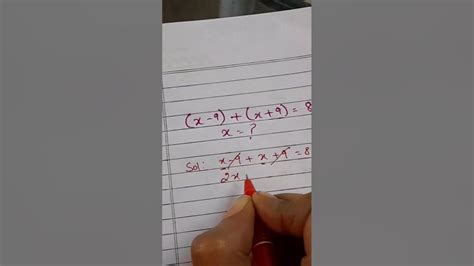 (x-9) + (x+9) = 8
x = ?
Sol: x-9 + x+9 = 8
2x